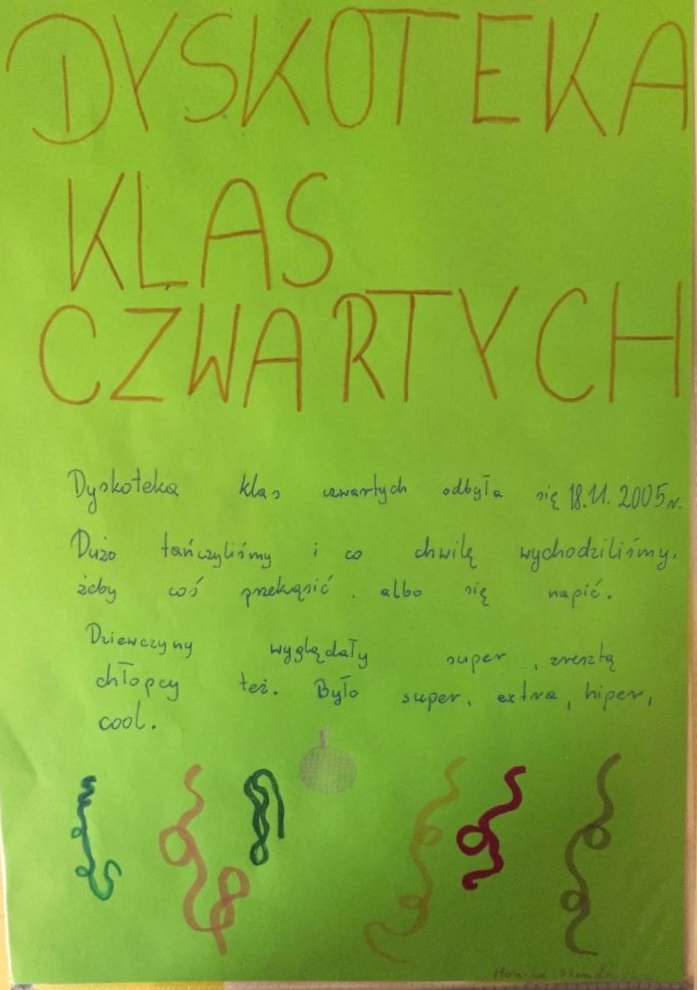 DYSKOTEKA
KLAS
CZWARTYCH
Dyskoteka klas czwartych odbyła się 18.11.2005r.
Dużo tańczyliśmy i co chwilę wychodziliśmy,
żeby coś przekąsić, albo się napić.
Dziewczyny wyglądały super, zresztą
chłopcy też. Było super, extra, hiper,
cool.
Monika